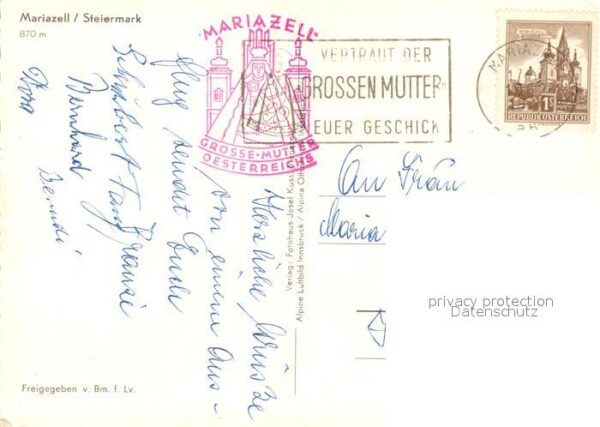 Mariazell / Steiermark
870 m
"MARIAZELL"
GROSSE·MUTTER
OESTERREICHS
VERTRAUT DER
"GROSSEN MUTTER"
EUER GESCHICK
MARIAZELL
1S
REPUBLIK ÖSTERREICH
Herzliche Grüsse
von einem Aus-
flug sendet Euch
Bernhard
Dora
An Frau
Maria
Verlag: Fotohaus Josef Kuss
Alpine Luftbild Innsbruck / Alpine
privacy protection
Datenschutz
Freigegeben v. Bm. f. Lv.